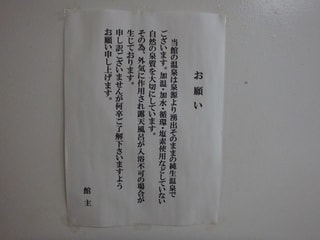 お願い
当館の温泉は泉源より湧出そのままの純生温泉で
ございます。加温・加水・循環・塩素使用などしていない
自然の泉質を大切にしています。
その為、外気に作用され露天風呂が入浴不可の場合が
生じております。
申し訳ございませんが何卒ご了解下さいますよう
お願い申し上げます。
館主